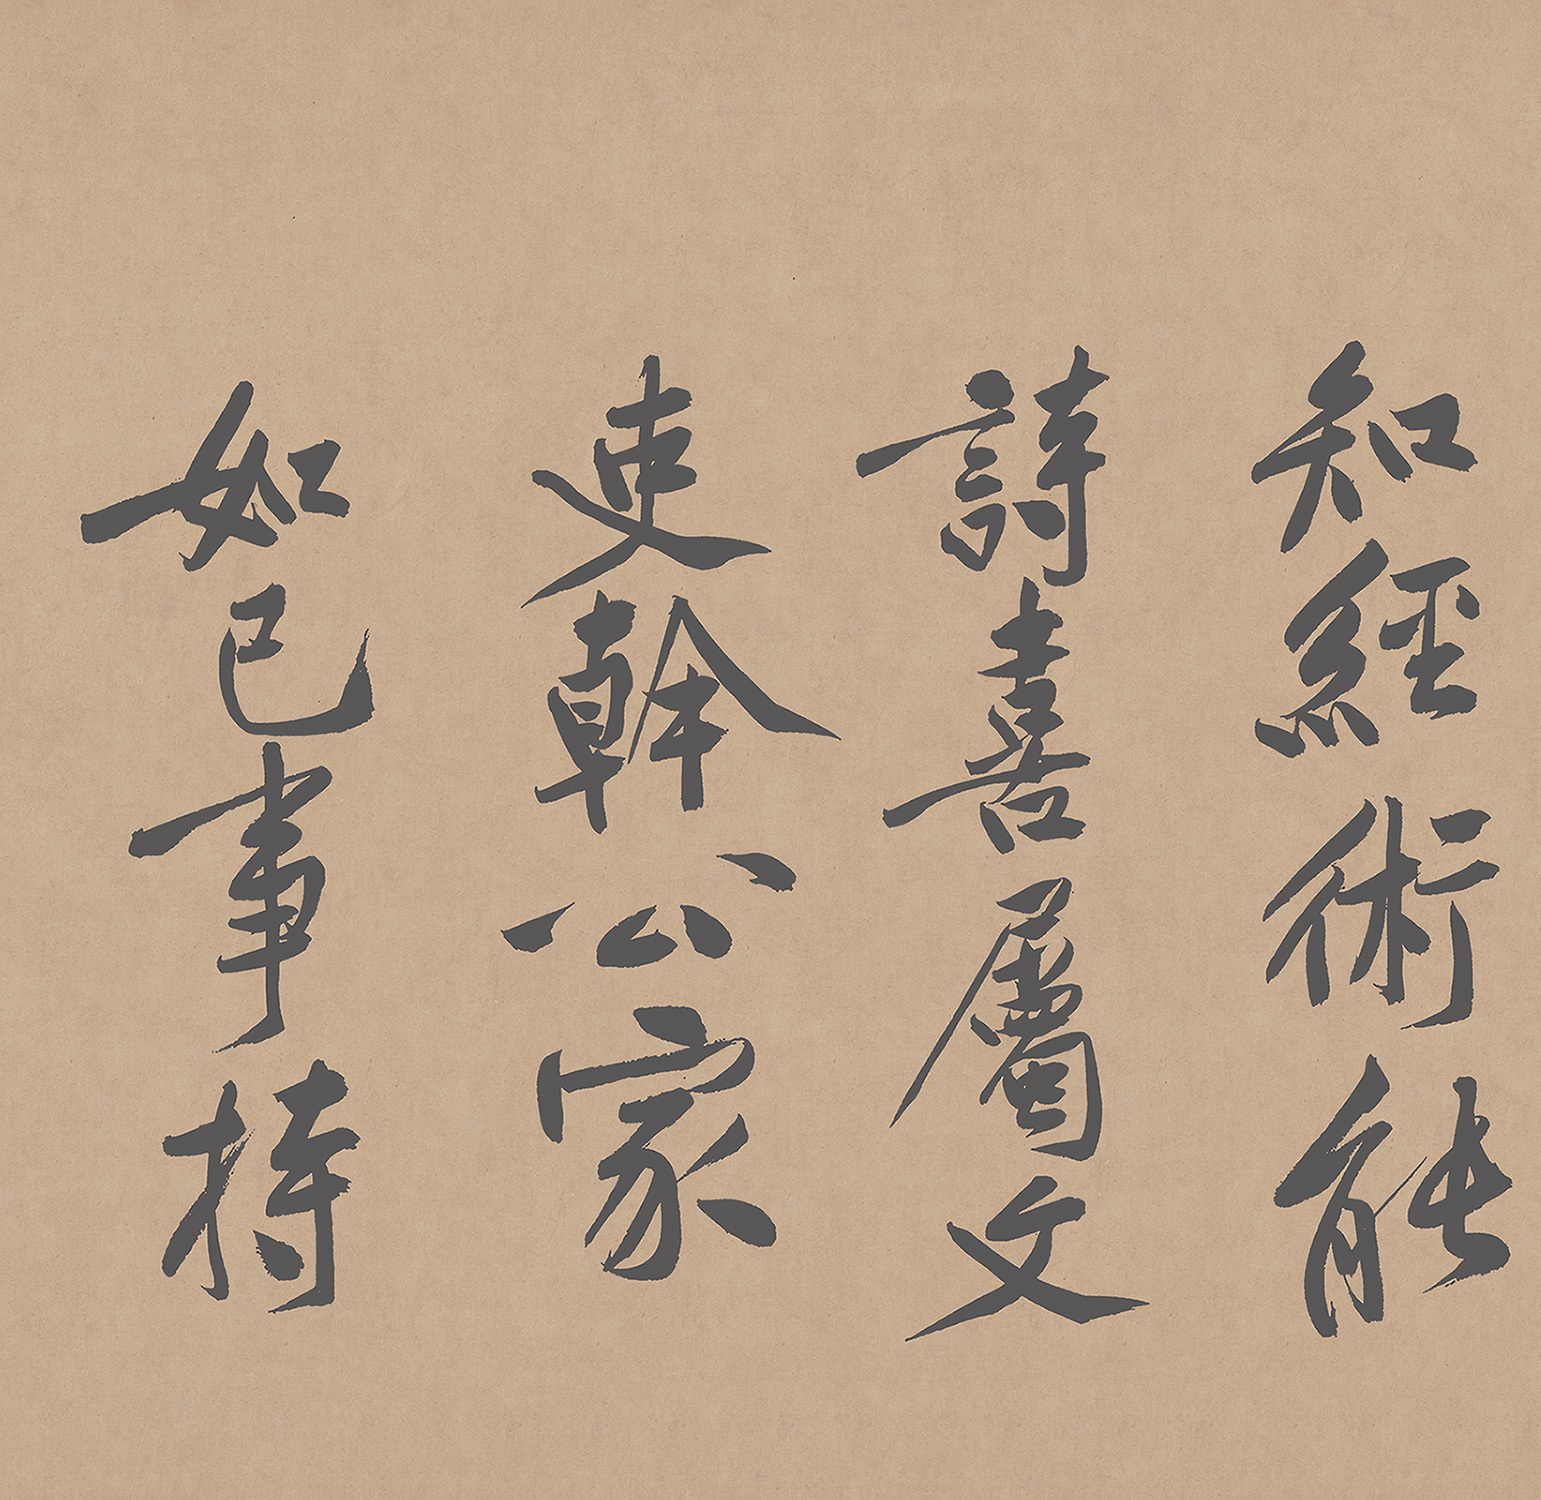 知經術能
詩喜屬文
吏幹公家
如己事持